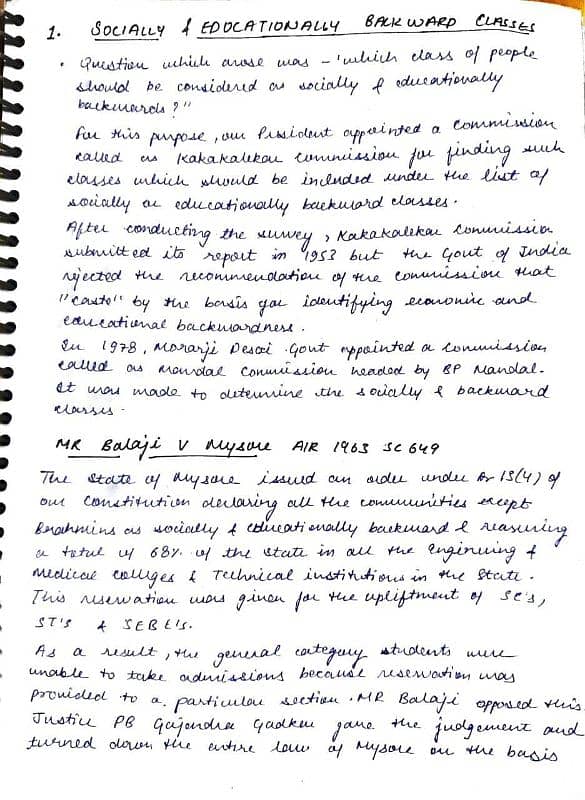 1. SOCIALLY & EDUCATIONALLY BACKWARD CLASSES
• Question which arose was – 'which class of people
should be considered as socially & educationally
backwards?"
For this purpose, our President appointed a commission
called as Kakakalekar commission for finding such
classes which should be included under the list of
socially or educationally backward classes.
After conducting the survey, Kakakalekar Commission
submitted its report in 1953 but the Govt of India
rejected the recommendation of the commission that
"caste" by the basis for identifying economic and
educational backwardness.
In 1978, Morarji Desai Govt appointed a commission
called as Mandal Commission headed by BP Mandal.
It was made to determine the socially & backward
classes.
MR Balaji V Mysore AIR 1963 SC 649
The State of Mysore issued an order under Ar 15(4) of
our Constitution declaring all the communities except
Brahmins as socially & educationally backward & reasuring
a total of 68% of the state in all the Engineering &
Medical colleges & Technical institutions in the State.
This reservation was given for the upliftment of SC's,
ST'S & SEBC's.
As a result, the general category students were
unable to take admissions because reservation was
provided to a particular section. MR Balaji opposed this.
Justice PB Gajendra Gadkar gave the judgement and
turned down the entire law of Mysore on the basis